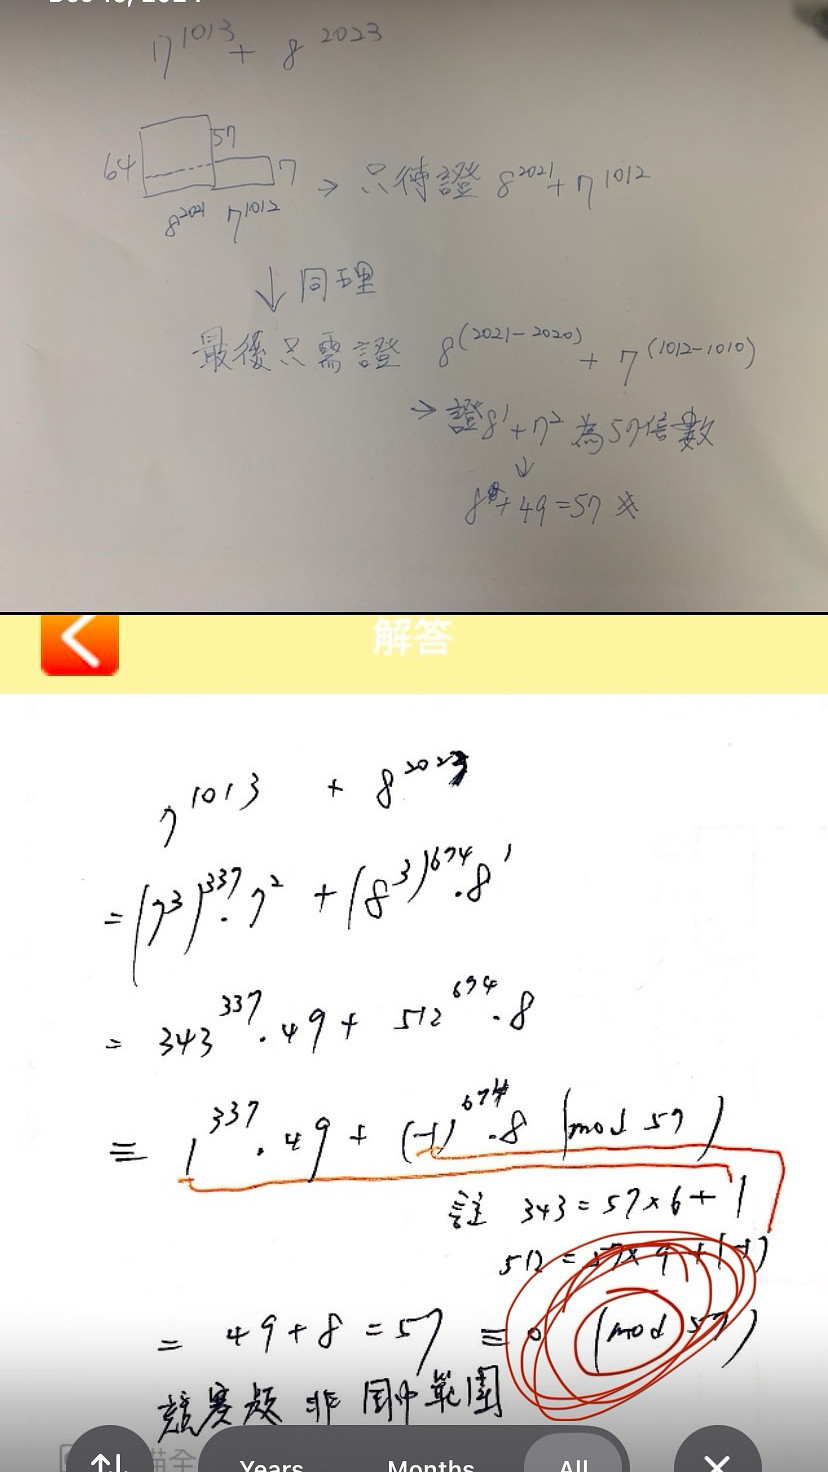 7^1013 + 8^2023
57
64
7
→ 只待證 8^2021 + 7^1012
8^2021 7^1012
↓ 同理
最後只需證 8^(2021-2020) + 7^(1012-1010)
→ 證8^1+7^2 為57倍數
↓
8+49=57
解答
7^1013 + 8^2023
= (7^3)^337 · 7^2 + (8^3)^674 · 8^1
= 343^337 · 49 + 512^674 · 8
≡ 1^337 · 49 + (-1)^674 · 8 (mod 57)
註 343 = 57×6+1
512 = 57×9+(-1)
= 49+8=57 ≡ 0 (mod 57)
競賽題 非 國中範圍
Years
Months
All